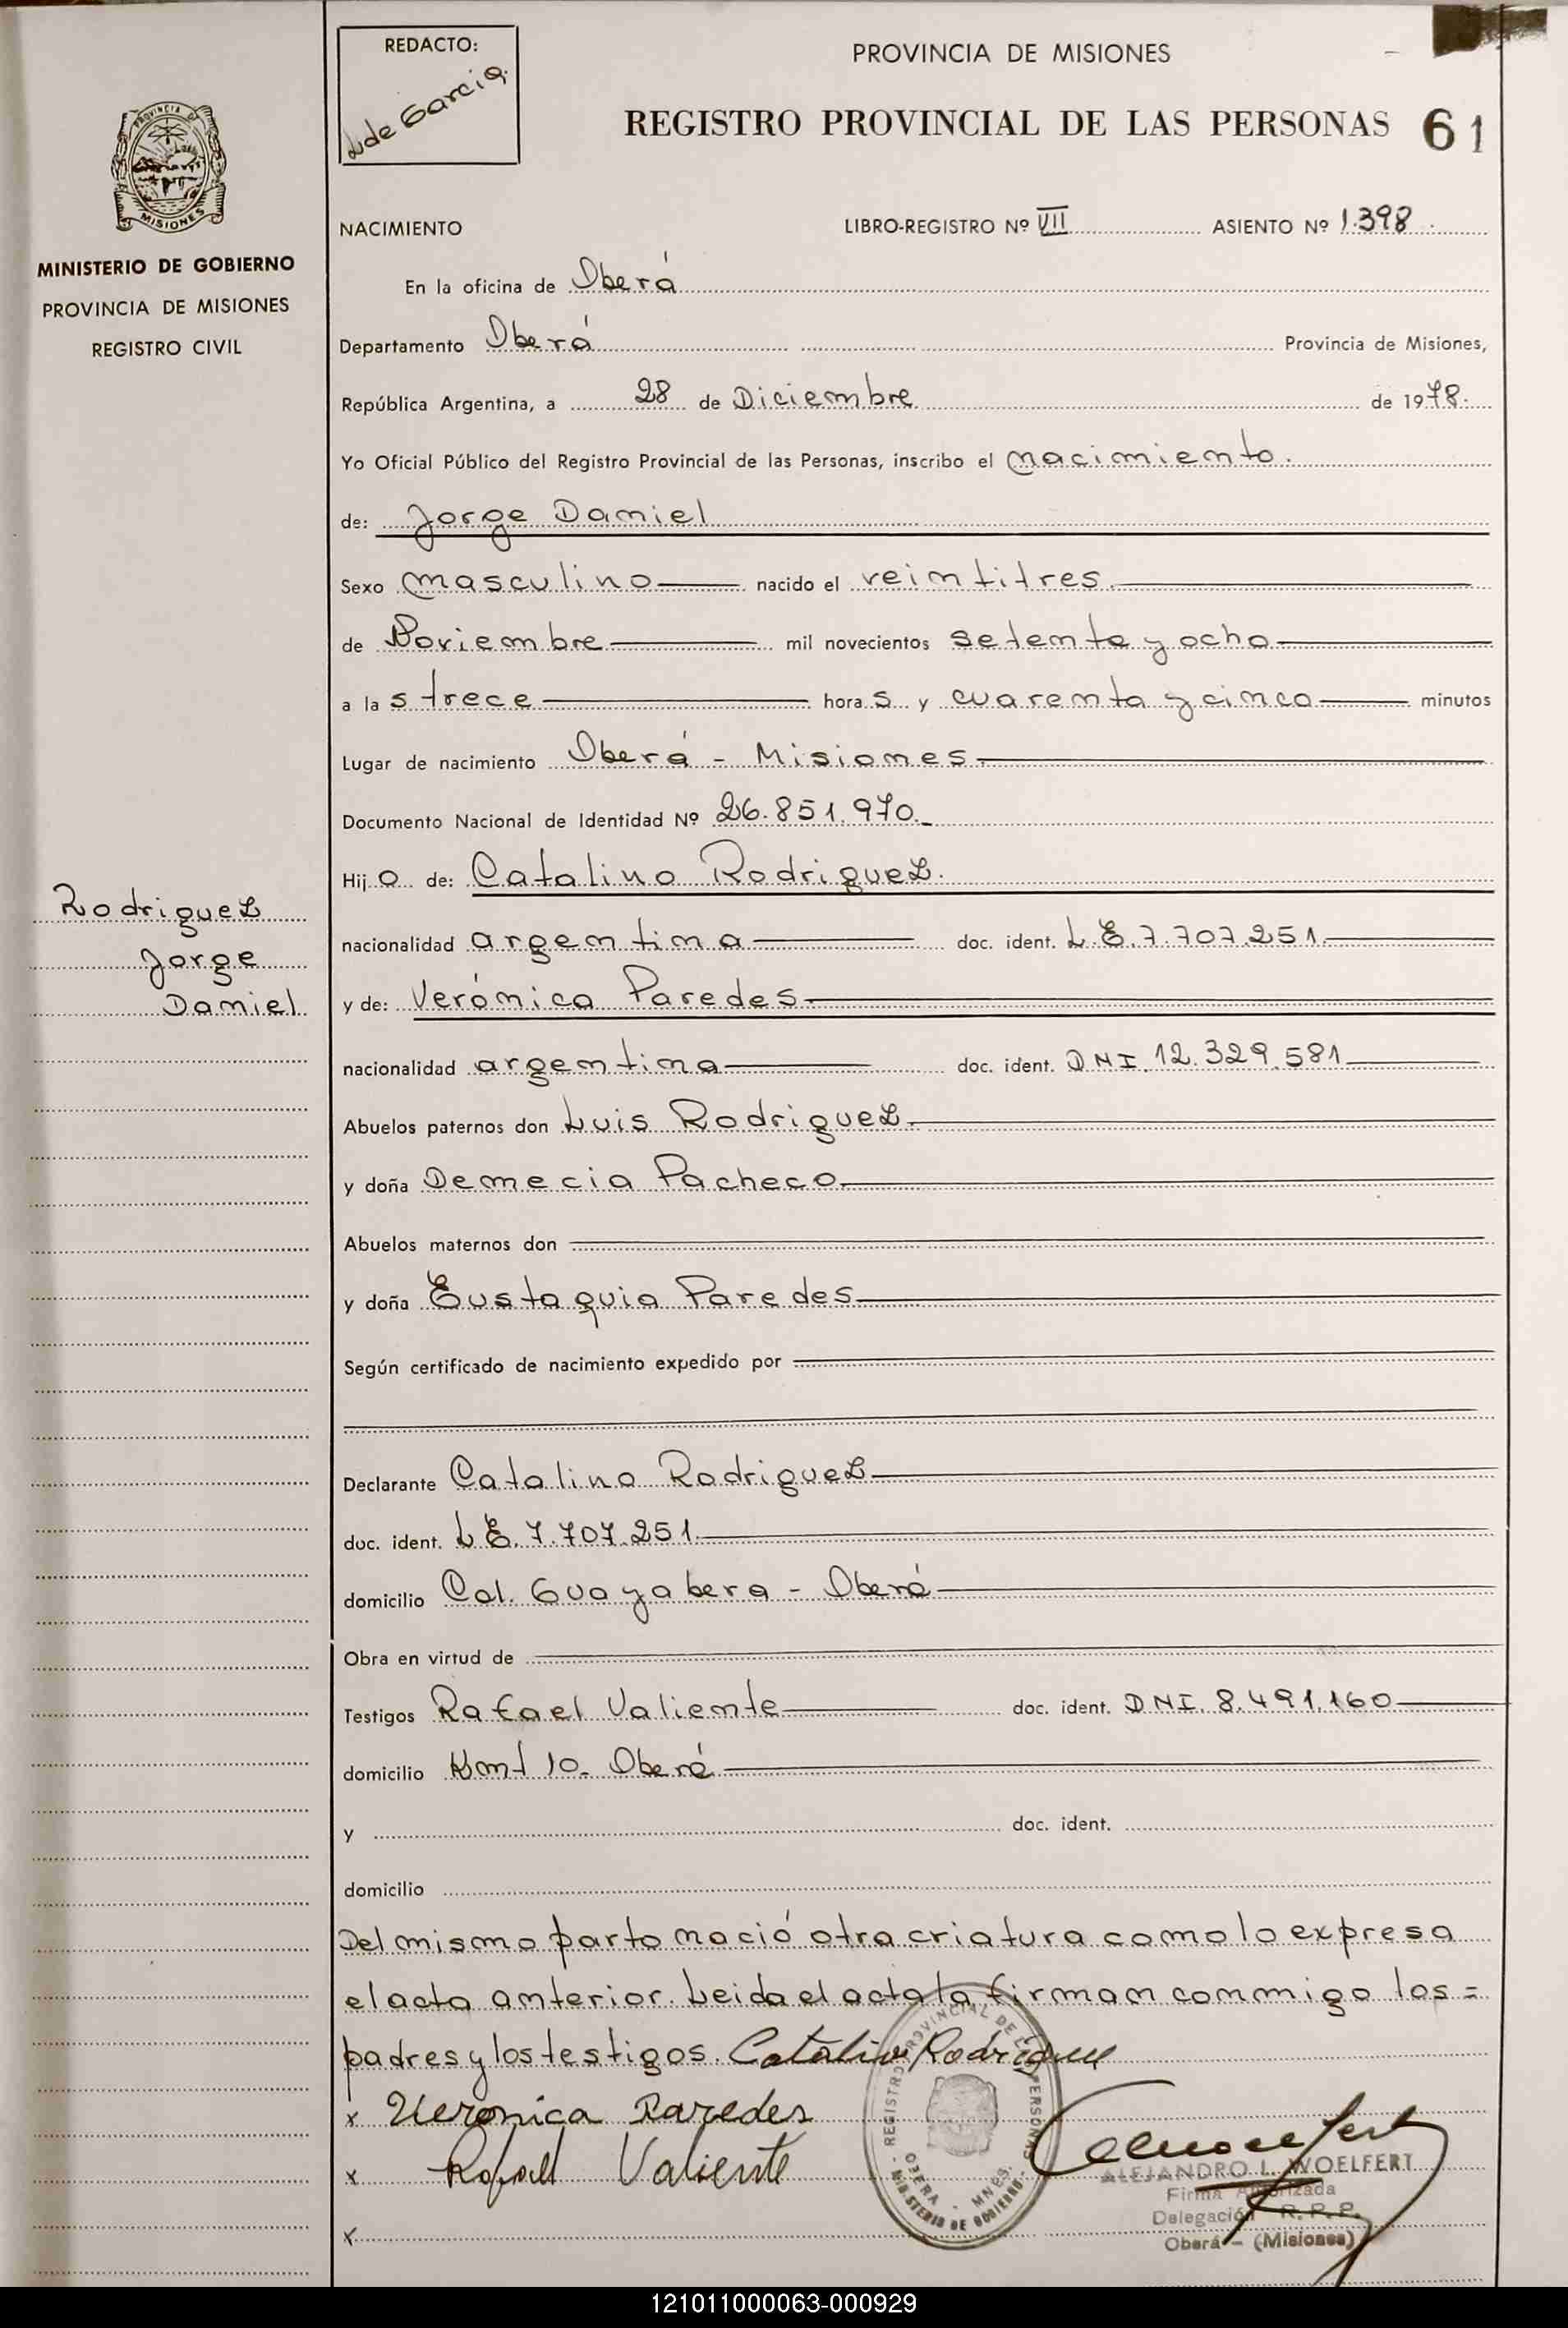 REDACTO:
L de Garcia
PROVINCIA DE MISIONES
REGISTRO PROVINCIAL DE LAS PERSONAS 61
PROVINCIA D
MISIONES
MINISTERIO DE GOBIERNO
PROVINCIA DE MISIONES
REGISTRO CIVIL
NACIMIENTO LIBRO-REGISTRO Nº VII ASIENTO Nº 1.398
En la oficina de Oberá
Departamento Oberá Provincia de Misiones,
República Argentina, a 28 de Diciembre de 1978.
Yo Oficial Público del Registro Provincial de las Personas, inscribo el nacimiento.
de: Jorge Daniel
Sexo masculino nacido el veintitres
de Noviembre mil novecientos setenta y ocho
a las trece horas y cuarenta y cinco minutos
Lugar de nacimiento Oberá - Misiones
Documento Nacional de Identidad Nº 26.851.970.
Hijo de: Catalino Rodriguez.
nacionalidad argentina doc. ident. L E. 7.707.251.
y de: Verónica Paredes
nacionalidad argentina doc. ident. DNI. 12.329.581
Abuelos paternos don Luis Rodriguez
y doña Demecia Pacheco
Abuelos maternos don
y doña Eustaquia Paredes
Según certificado de nacimiento expedido por
Declarante Catalino Rodriguez
doc. ident. L E. 7.707.251.
domicilio Col. Guayabera - Oberá
Obra en virtud de
Testigos Rafael Valiente doc. ident. DNI. 8.491.160
domicilio Kmt 10. Oberá
y doc. ident.
domicilio
Del mismo parto nació otra criatura como lo expresa
el acta anterior. Leida el acta la firman conmigo los =
padres y los testigos. Catalino Rodrigues
x Veronica Paredes
x Rafael Valiente
x
Rodriguez
Jorge
Daniel
REGISTRO PROVINCIAL DE LAS PERSONAS
OBERA - MNES.
MINISTERIO DE GOBIERNO
ALEJANDRO L. WOELFERT
Firma Autorizada
Delegación R.P.P.
Oberá - (Misiones)
121011000063-000929